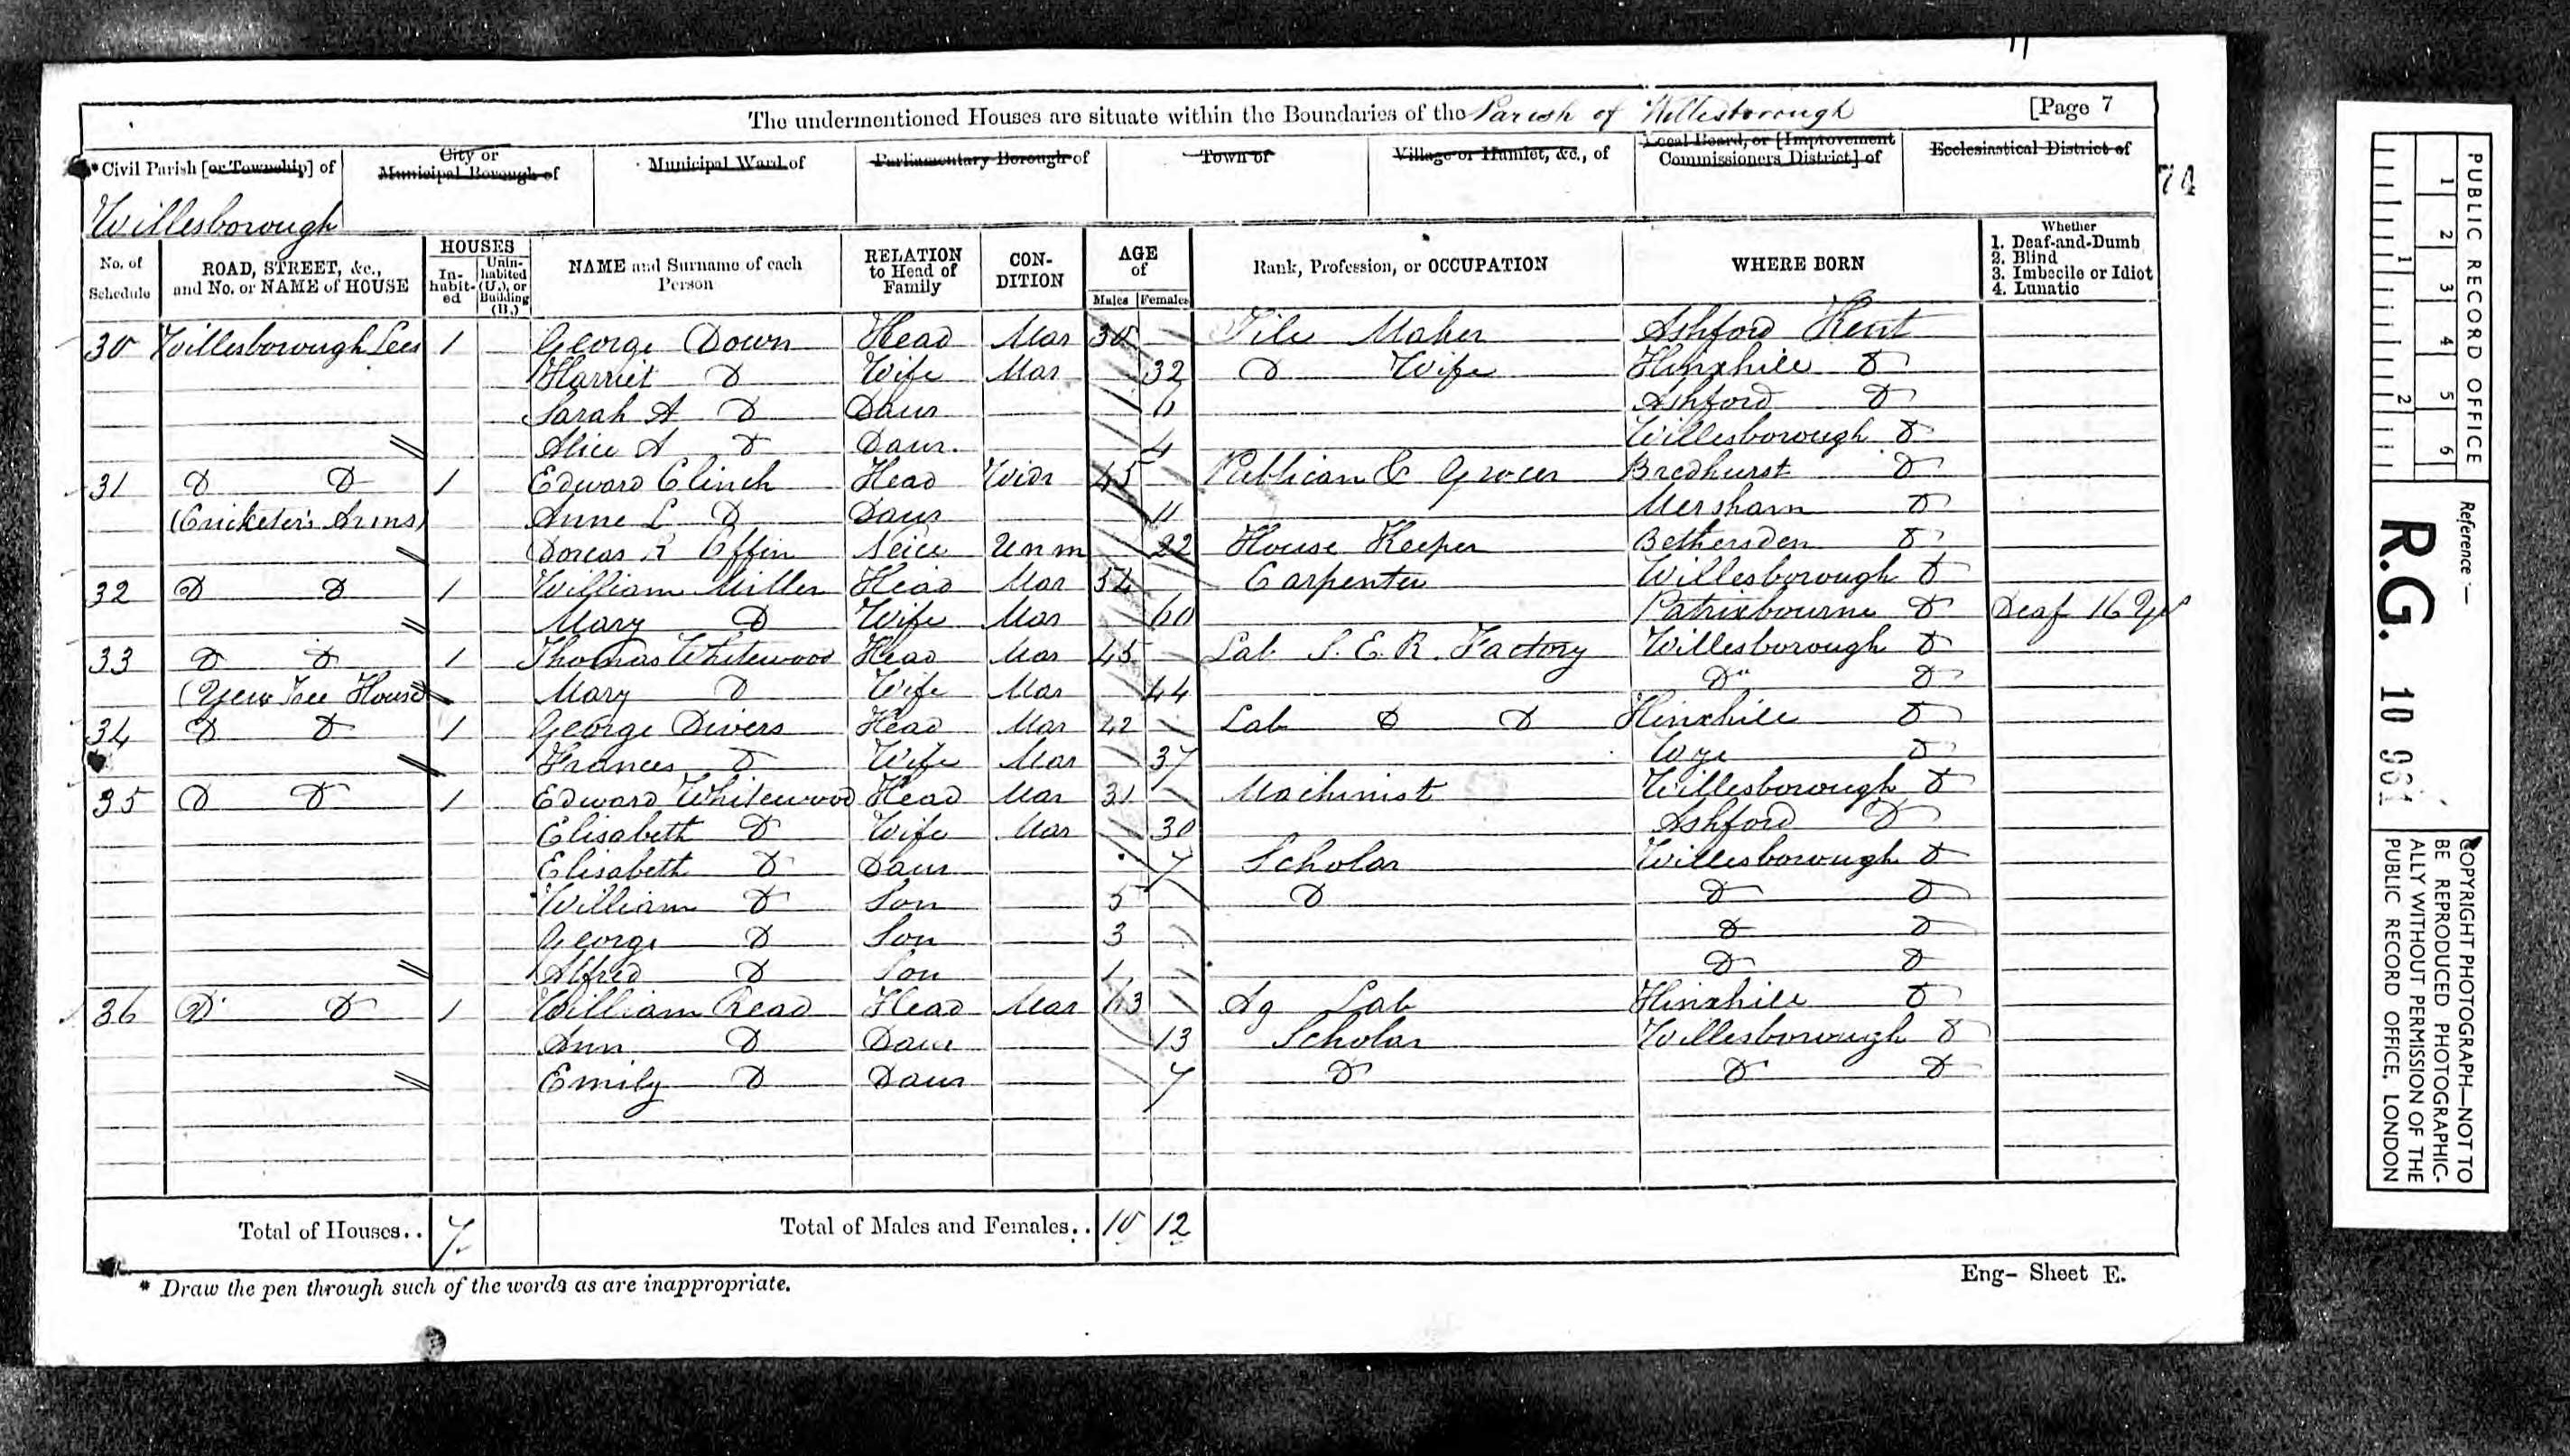 The undermentioned Houses are situate within the Boundaries of the Parish of Willesborough [Page 7
*Civil Parish [or Township] of City or Municipal Borough of Municipal Ward of Parliamentary Borough of Town of Village or Hamlet, &c., of Local Board, or [Improvement Commissioners District] of Ecclesiastical District of
74
Willesborough
No. of Schedule ROAD, STREET, &c., and No. or NAME of HOUSE HOUSES In-habit-ed Unin-habited (U.), or Building (B.) NAME and Surname of each Person RELATION to Head of Family CON-DITION AGE of Males Females Rank, Profession, or OCCUPATION WHERE BORN Whether 1. Deaf-and-Dumb 2. Blind 3. Imbecile or Idiot 4. Lunatic
30 Willesborough Lees 1 George Down Head Mar 30 Tile Maker Ashford Kent
Harriet D Wife Mar 32 D Wife Hinxhill D
Sarah A D Daur Ashford D
Alice A D Daur. 4 Willesborough D
31 D D 1 Edward Clinch Head Widr 45 Publican & Grocer Bredhurst D
(Cricketer's Arms) Anne L D Daur 11 Mersham D
Dorcas R Offin Neice Unm 22 House Keeper Bethersden D
32 D D 1 William Miller Head Mar Carpenter Willesborough D
Mary D Wife Mar 60 Patrixbourne D Deaf 16 Yrs
33 D D 1 Thomas Whitewood Head Mar 45 Lab S. E. R. Factory Willesborough D
(Yew Tree House Mary D Wife Mar 44 D D
34 D D 1 George Divers Head Mar 42 Lab D D Hinxhill D
Frances D Wife Mar 37 Wye D
35 D D 1 Edward Whitewood Head Mar 31 Machinist Willesborough D
Elisabeth D Wife Mar 30 Ashford D
Elisabeth D Daur 7 Scholar Willesborough D
William D Son 5 D D D
George D Son 3 D D
Alfred D Son 1 D D
36 D D 1 William Read Head Mar Ag Lab Hinxhill D
Ann D Daur 13 Scholar Willesborough D
Emily D Daur 7 D D D
Total of Houses.. 7 Total of Males and Females.. 10 12
* Draw the pen through such of the words as are inappropriate.
Eng- Sheet E.
1 2 3 4 5 6
1 2
PUBLIC RECORD OFFICE
Reference:-
R.G. 10
COPYRIGHT PHOTOGRAPH—NOT TO
BE REPRODUCED PHOTOGRAPHIC-
ALLY WITHOUT PERMISSION OF THE
PUBLIC RECORD OFFICE, LONDON